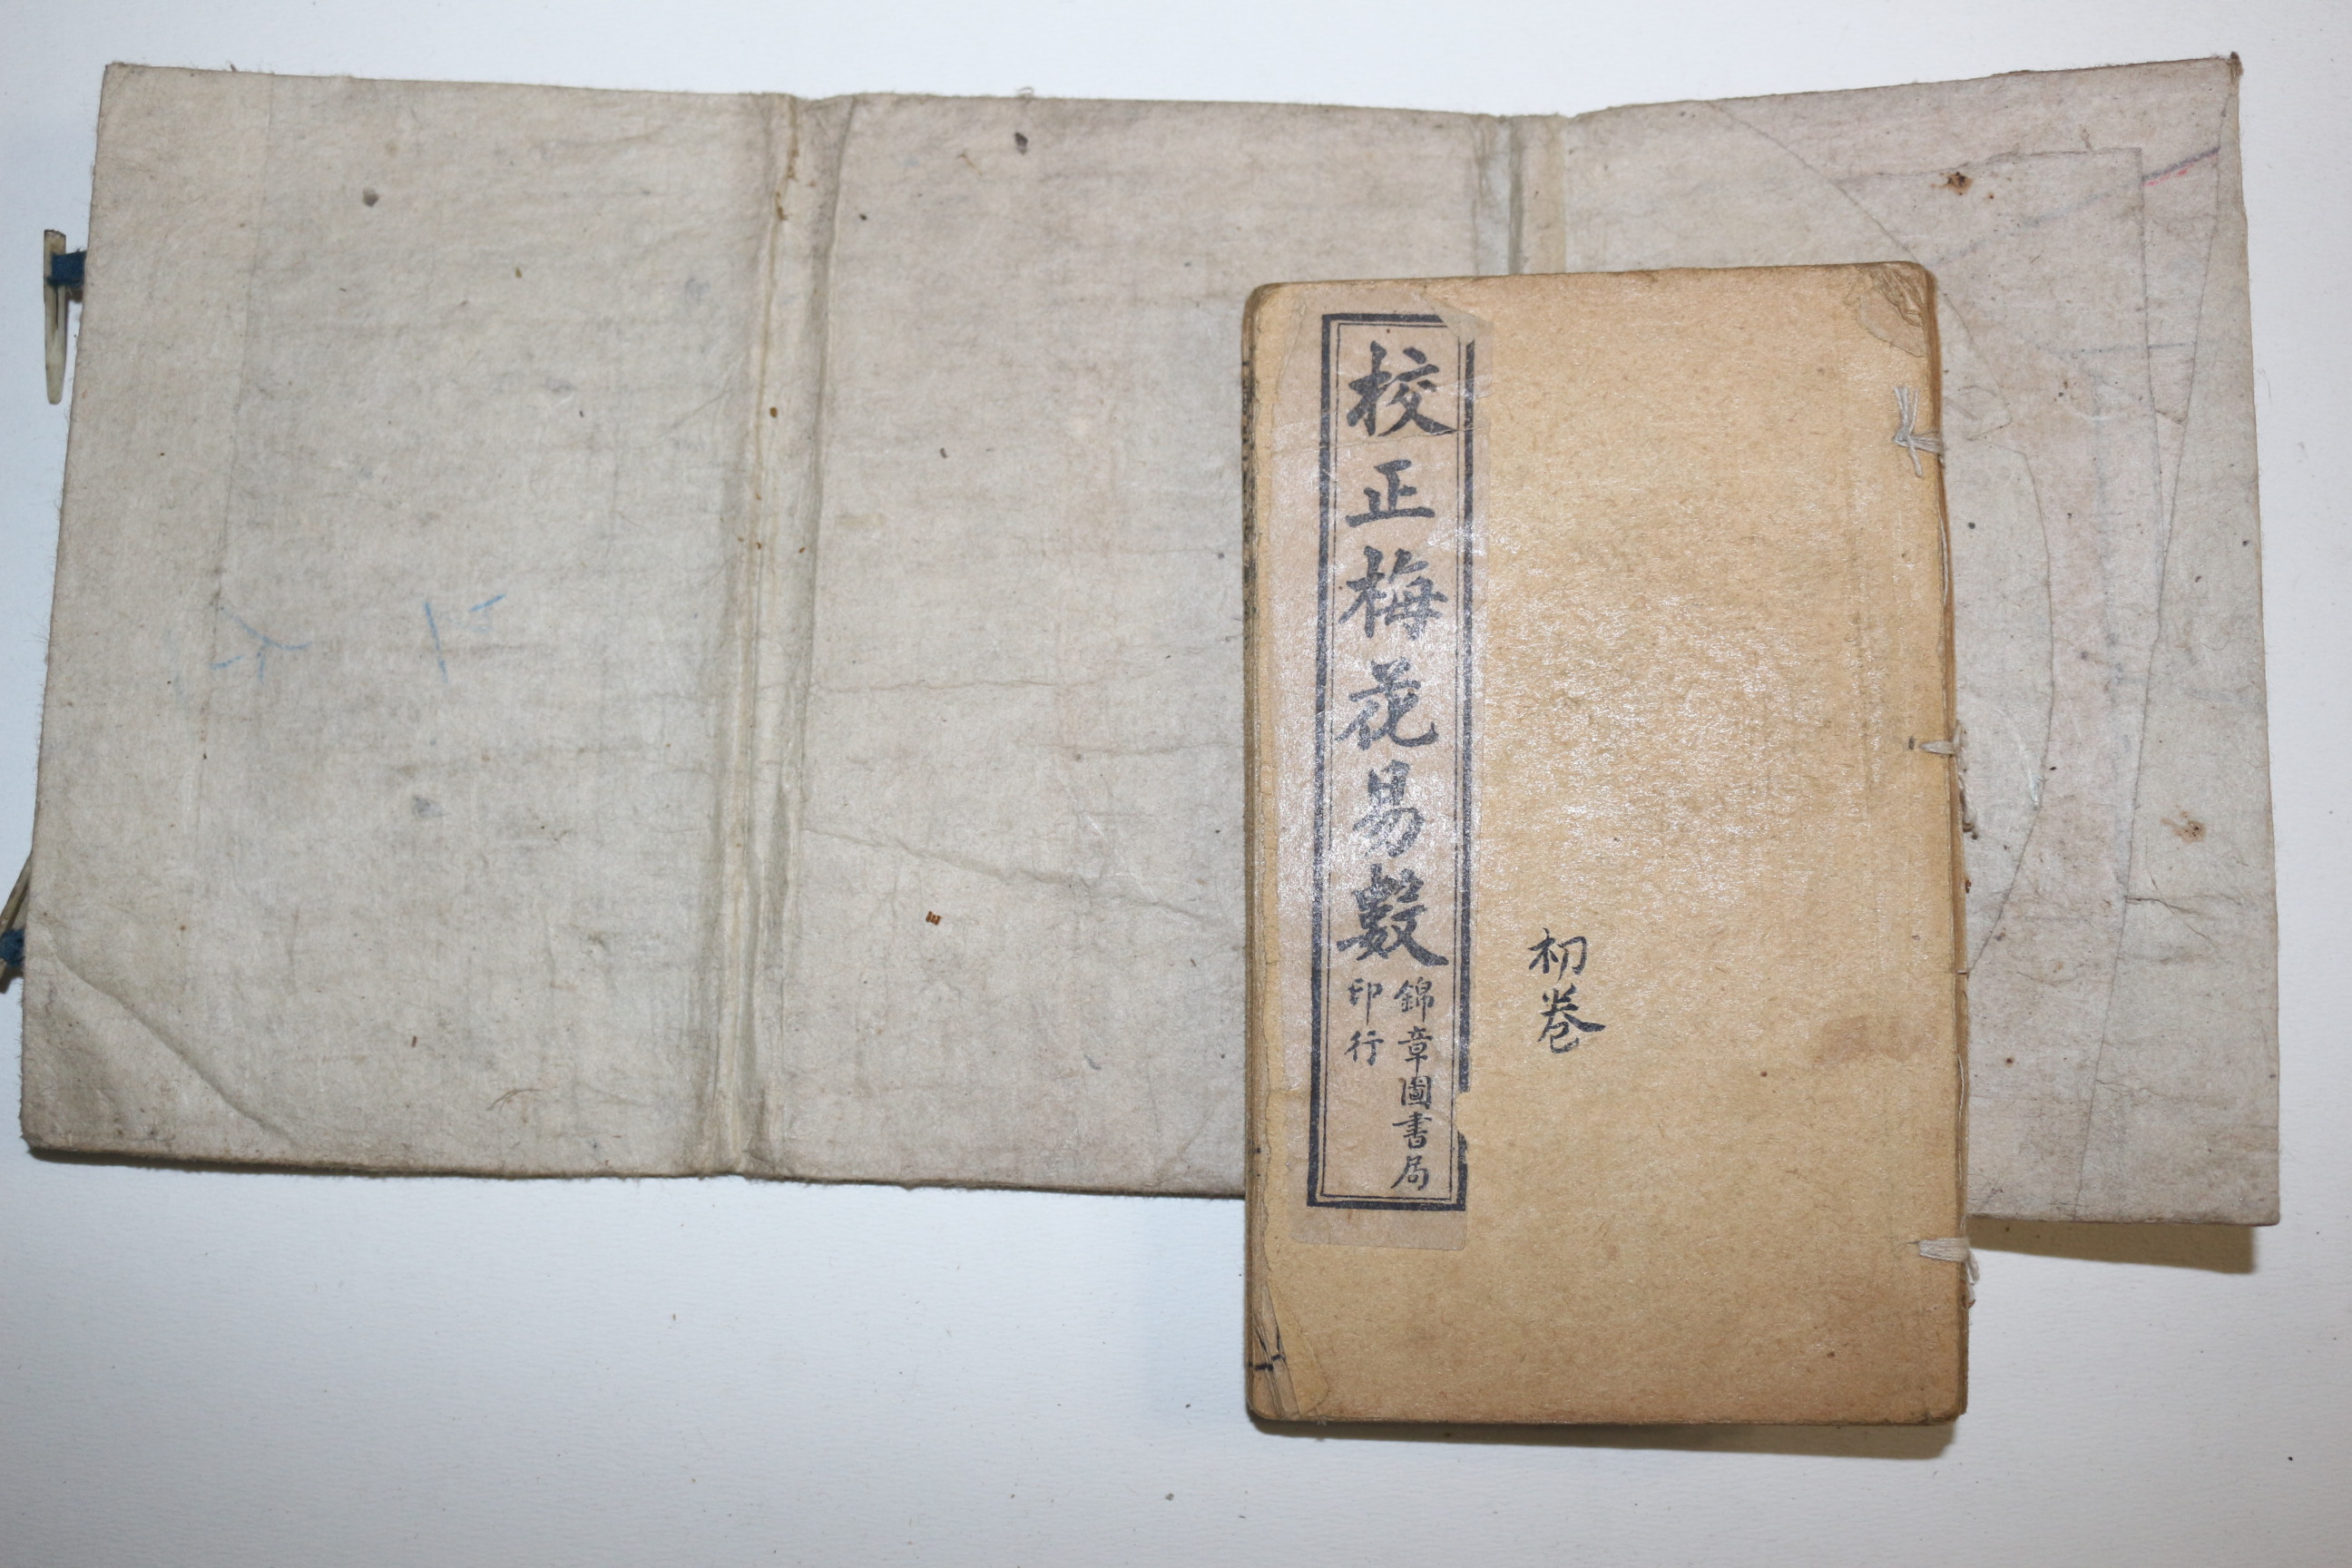 校正梅花易數
錦章圖書局
印行
初卷